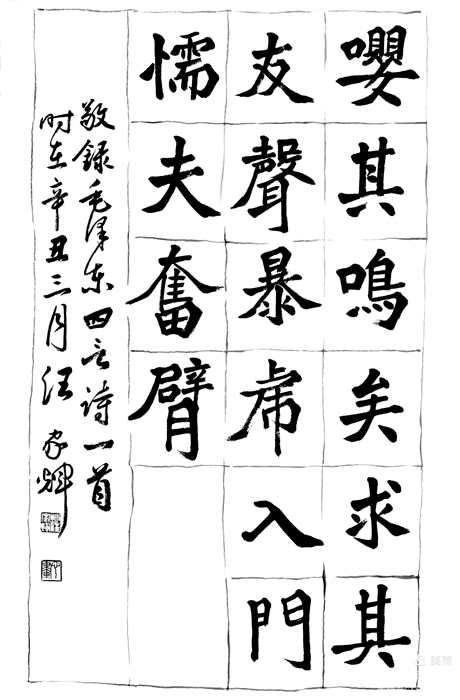 嚶其鳴矣求其
友聲暴虎入門
懦夫奮臂
敬錄毛泽东四言詩一首
时在辛丑三月汪家輝